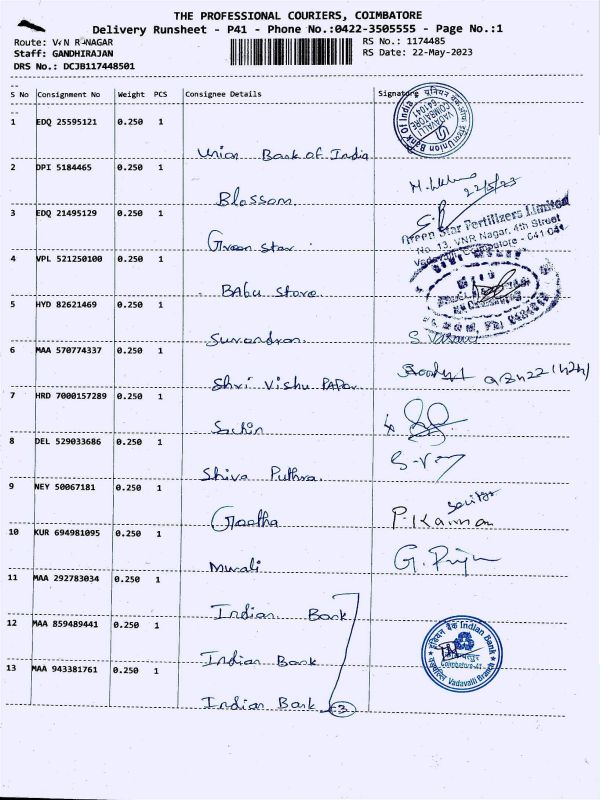 THE PROFESSIONAL COURIERS, COIMBATORE
Delivery Runsheet - P41 - Phone No.:0422-3505555 - Page No.:1
Route: V N R NAGAR
RS No.: 1174485
Staff: GANDHIRAJAN
RS Date: 22-May-2023
DRS No.: DCJB117448501
S No Consignment No Weight PCS Consignee Details Signature
1 EDQ 25595121 0.250 1
Union Bank Of India
COIMBATORE
641041
Union Bank of India
2 DPI 5184465 0.250 1
Blossom
22/5/23
3 EDQ 21495129 0.250 1
Green Star Fertilizers Limited
No. 13, VNR Nagar, 4th Street
Green Star
4 VPL 521250100 0.250 1
BABu Store
5 HYD 82621469 0.250 1
Surendran
6 MAA 570774337 0.250 1
Shri Vishu PAPar
7 HRD 7000157289 0.250 1
Sachin
8 DEL 529033686 0.250 1
Shiva Puthra
9 NEY 50067181 0.250 1
Geetha
P. Kannan
10 KUR 694981095 0.250 1
Murali
11 MAA 292783034 0.250 1
Indian Bank
12 MAA 859489441 0.250 1
Indian Bank
इंडियन बैंक Indian Bank
Coimbatore-41
Vadavalli Branch
13 MAA 943381761 0.250 1
Indian Bank 3